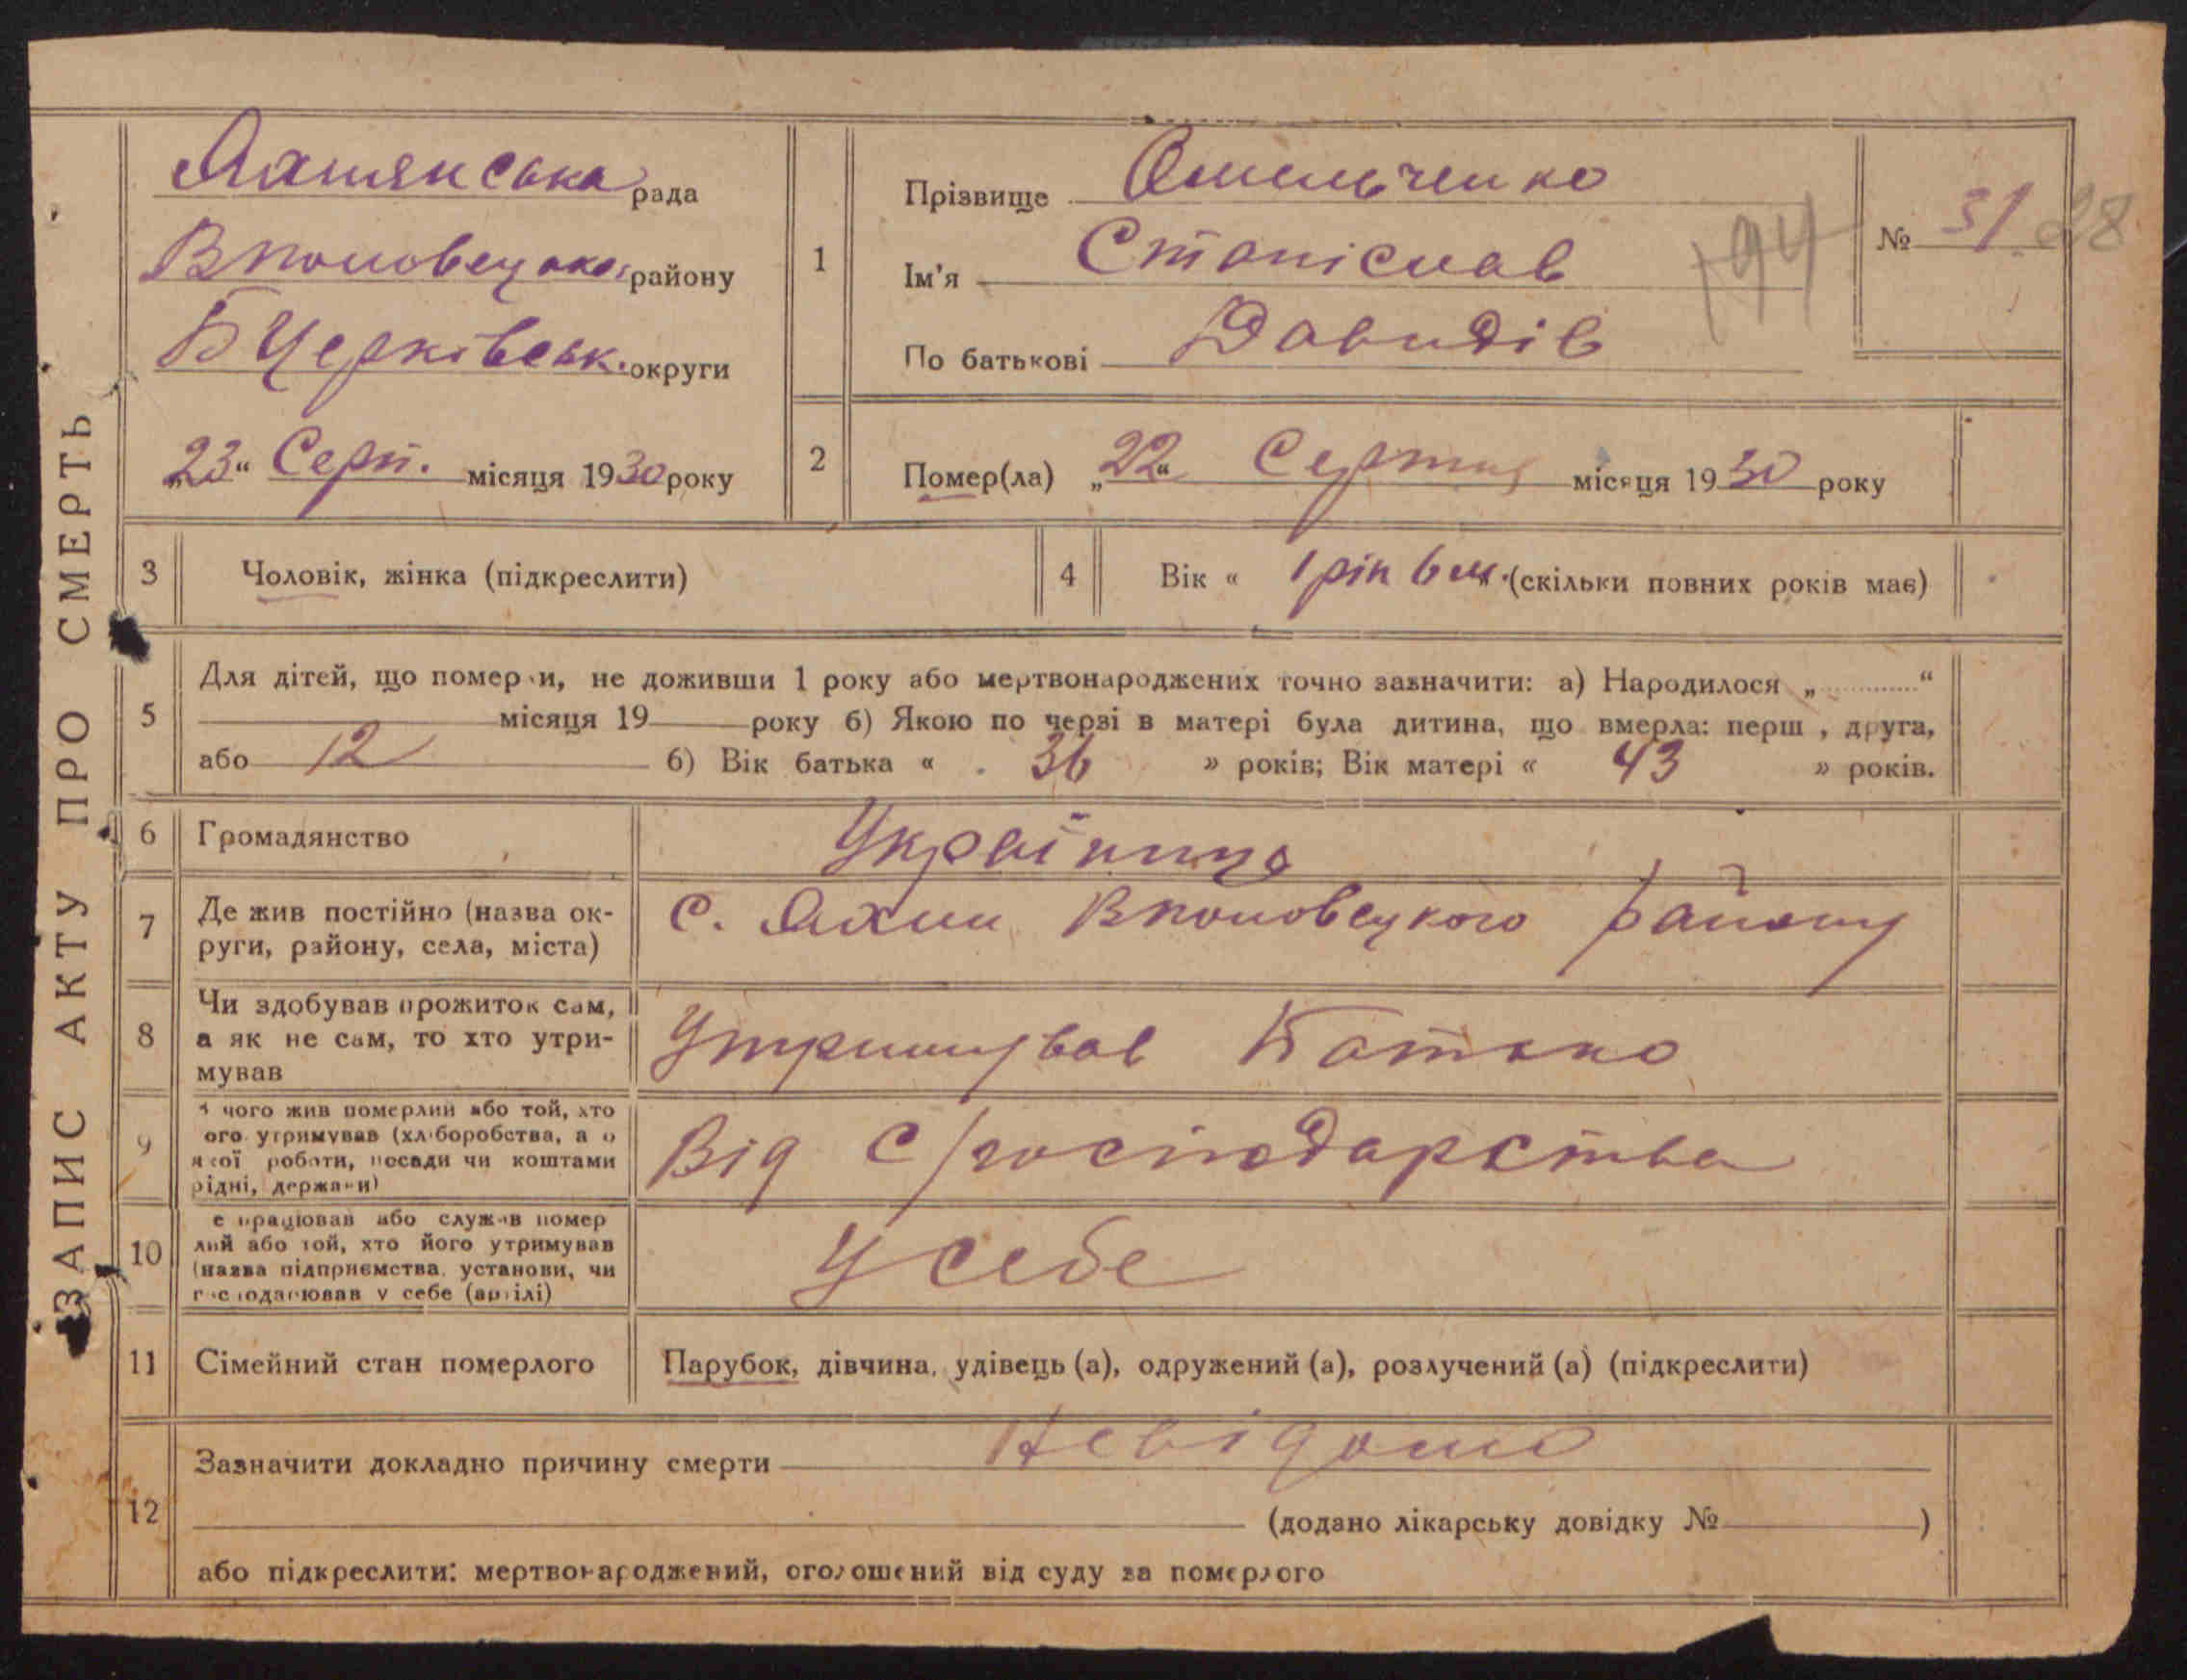 ЗАПИС АКТУ ПРО СМЕРТЬ
Яхнянська рада
Вполовецьк. району
БЦерківськ. округи
„23“ Серп. місяця 1930 року
1
Прізвище Омельченко
Ім'я Станіслав
По батькові Давидів
194
№ 31 28
2
Помер(ла) „22“ Серпня місяця 1930 року
3 Чоловік, жінка (підкреслити)
4 Вік « 1 рік 6 м. » (скільки повних років має)
5
Для дітей, що померли, не доживши 1 року або мертвонароджених точно зазначити: а) Народилося „ “
місяця 19 року б) Якою по черзі в матері була дитина, що вмерла: перш , друга,
або 12 б) Вік батька « 36 » років; Вік матері « 43 » років.
6 Громадянство Українець
7 Де жив постійно (назва ок-
руги, району, села, міста)
с. Яхни Вполовецького району
8 Чи здобував прожиток сам,
а як не сам, то хто утри-
мував
Утримував Батько
9 З чого жив померлий або той, хто
його утримував (хліборобства, а о
якої роботи, посади чи коштами
рідні, держави)
Від с/господарства
10 е працював або служив помер
лий або той, хто його утримував
(назва підприємства, установи, чи
господарював у себе (артілі)
У себе
11 Сімейний стан померлого Парубок, дівчина, удівець (а), одружений (а), розлучений (а) (підкреслити)
12 Зазначити докладно причину смерти Невідомо
(додано лікарську довідку № )
або підкреслити: мертвонароджений, оголошений від суду за померлого